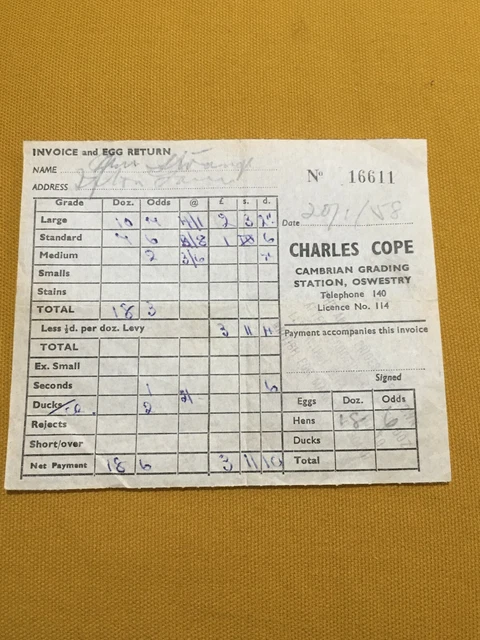 INVOICE and EGG RETURN
NAME
Nº 16611
ADDRESS
Grade Doz. Odds @ £ s. d.
Large 10 4 2
Date 20/1/58
Standard 7 6 1 6
CHARLES COPE
Medium 2 3/6
CAMBRIAN GRADING
Smalls
STATION, OSWESTRY
Stains
Telephone 140
TOTAL 18 3
Licence No. 114
Less ½d. per doz. Levy 3 11
Payment accompanies this invoice
TOTAL
Ex. Small
Signed
Seconds 1 6
Eggs Doz. Odds
Ducks 2
Hens 18 6
Rejects
Ducks
Short/over
Total
Net Payment 18 6 3 11/10